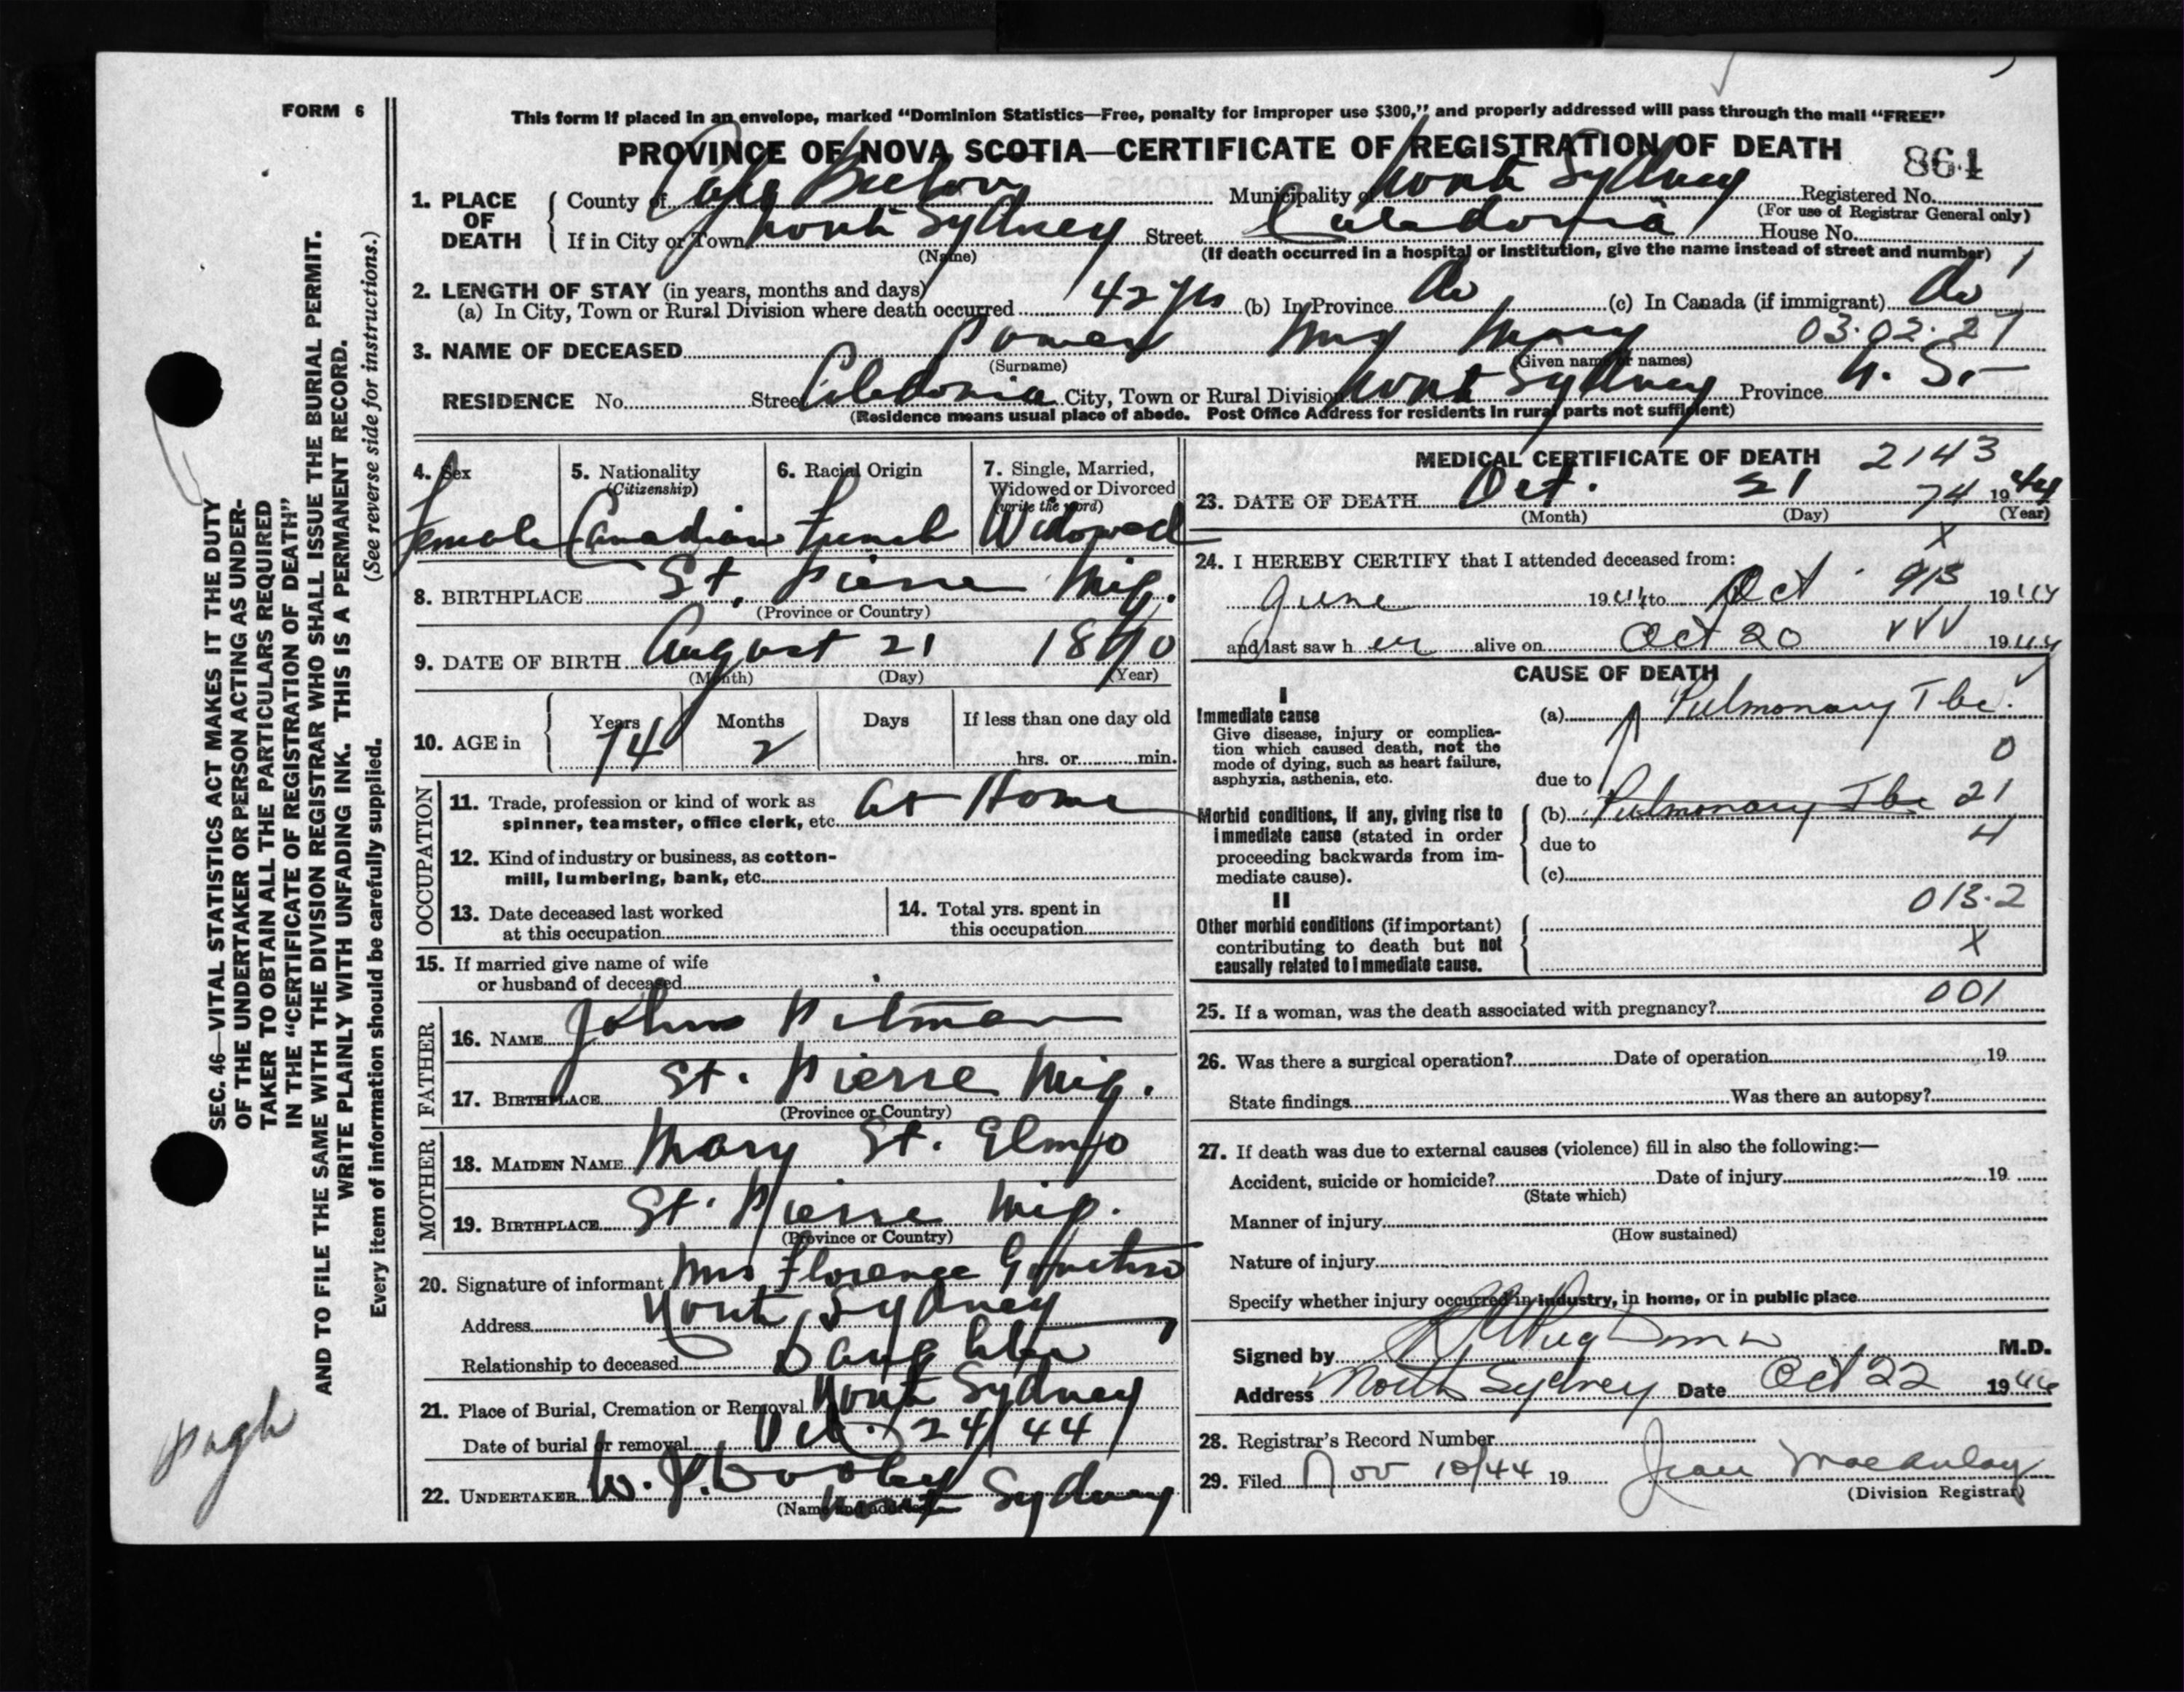 FORM 6
This form if placed in an envelope, marked "Dominion Statistics—Free, penalty for improper use $300," and properly addressed will pass through the mail "FREE"
PROVINCE OF NOVA SCOTIA—CERTIFICATE OF REGISTRATION OF DEATH
864
1. PLACE OF DEATH
County of Cape Breton Municipality of North Sydney Registered No.
(For use of Registrar General only)
If in City or Town North Sydney Street Caledonia House No.
(Name) (If death occurred in a hospital or institution, give the name instead of street and number) 1
2. LENGTH OF STAY (in years, months and days)
(a) In City, Town or Rural Division where death occurred 42 yrs (b) In Province Do (c) In Canada (if immigrant) Do
3. NAME OF DECEASED Power Mrs Mary 03.02.27
(Surname) (Given name or names)
RESIDENCE No. Street Caledonia City, Town or Rural Division North Sydney Province N. S.
(Residence means usual place of abode. Post Office Address for residents in rural parts not sufficient)
4. Sex 5. Nationality 6. Racial Origin 7. Single, Married,
(Citizenship) Widowed or Divorced
(write the word)
Female Canadian French Widowed
8. BIRTHPLACE St. Pierre Miq.
(Province or Country)
9. DATE OF BIRTH August 21 1870
(Month) (Day) (Year)
10. AGE in
Years Months Days If less than one day old
74 2 hrs. or min.
OCCUPATION
11. Trade, profession or kind of work as
spinner, teamster, office clerk, etc. At Home
12. Kind of industry or business, as cotton-
mill, lumbering, bank, etc.
13. Date deceased last worked
at this occupation
14. Total yrs. spent in
this occupation
15. If married give name of wife
or husband of deceased
FATHER
16. NAME John Pitman
17. BIRTHPLACE St. Pierre Miq.
(Province or Country)
MOTHER
18. MAIDEN NAME Mary St. Elmo
19. BIRTHPLACE St. Pierre Miq.
(Province or Country)
20. Signature of informant Mrs Florence
Address North Sydney
Relationship to deceased Daughter
21. Place of Burial, Cremation or Removal North Sydney
Date of burial or removal Oct. 24/44
22. UNDERTAKER W. J. Dooley
(Name and address) North Sydney
MEDICAL CERTIFICATE OF DEATH 2143
23. DATE OF DEATH Oct. 21 74 1944
(Month) (Day) (Year)
X
24. I HEREBY CERTIFY that I attended deceased from:
June 1944 to Oct 9/3 1944
and last saw her alive on Oct 20 VVV 1944
CAUSE OF DEATH
I
Immediate cause
Give disease, injury or complica-
tion which caused death, not the
mode of dying, such as heart failure,
asphyxia, asthenia, etc.
(a) Pulmonary Tbc.
0
due to
Morbid conditions, if any, giving rise to
immediate cause (stated in order
proceeding backwards from im-
mediate cause).
(b) Pulmonary Tbc 21
due to 4
(c)
II 013.2
Other morbid conditions (if important)
contributing to death but not
causally related to immediate cause.
X
25. If a woman, was the death associated with pregnancy? 001
26. Was there a surgical operation? Date of operation 19
State findings Was there an autopsy?
27. If death was due to external causes (violence) fill in also the following:—
Accident, suicide or homicide? Date of injury 19
(State which)
Manner of injury
(How sustained)
Nature of injury
Specify whether injury occurred in industry, in home, or in public place
Signed by Pugh M.D.
Address North Sydney Date Oct 22 1944
28. Registrar's Record Number
29. Filed Nov 10/44 19 Jean Macaulay
(Division Registrar)
SEC. 46—VITAL STATISTICS ACT MAKES IT THE DUTY
OF THE UNDERTAKER OR PERSON ACTING AS UNDER-
TAKER TO OBTAIN ALL THE PARTICULARS REQUIRED
IN THE "CERTIFICATE OF REGISTRATION OF DEATH"
AND TO FILE THE SAME WITH THE DIVISION REGISTRAR WHO SHALL ISSUE THE BURIAL PERMIT.
WRITE PLAINLY WITH UNFADING INK. THIS IS A PERMANENT RECORD.
Every item of information should be carefully supplied. (See reverse side for instructions.)
Pugh